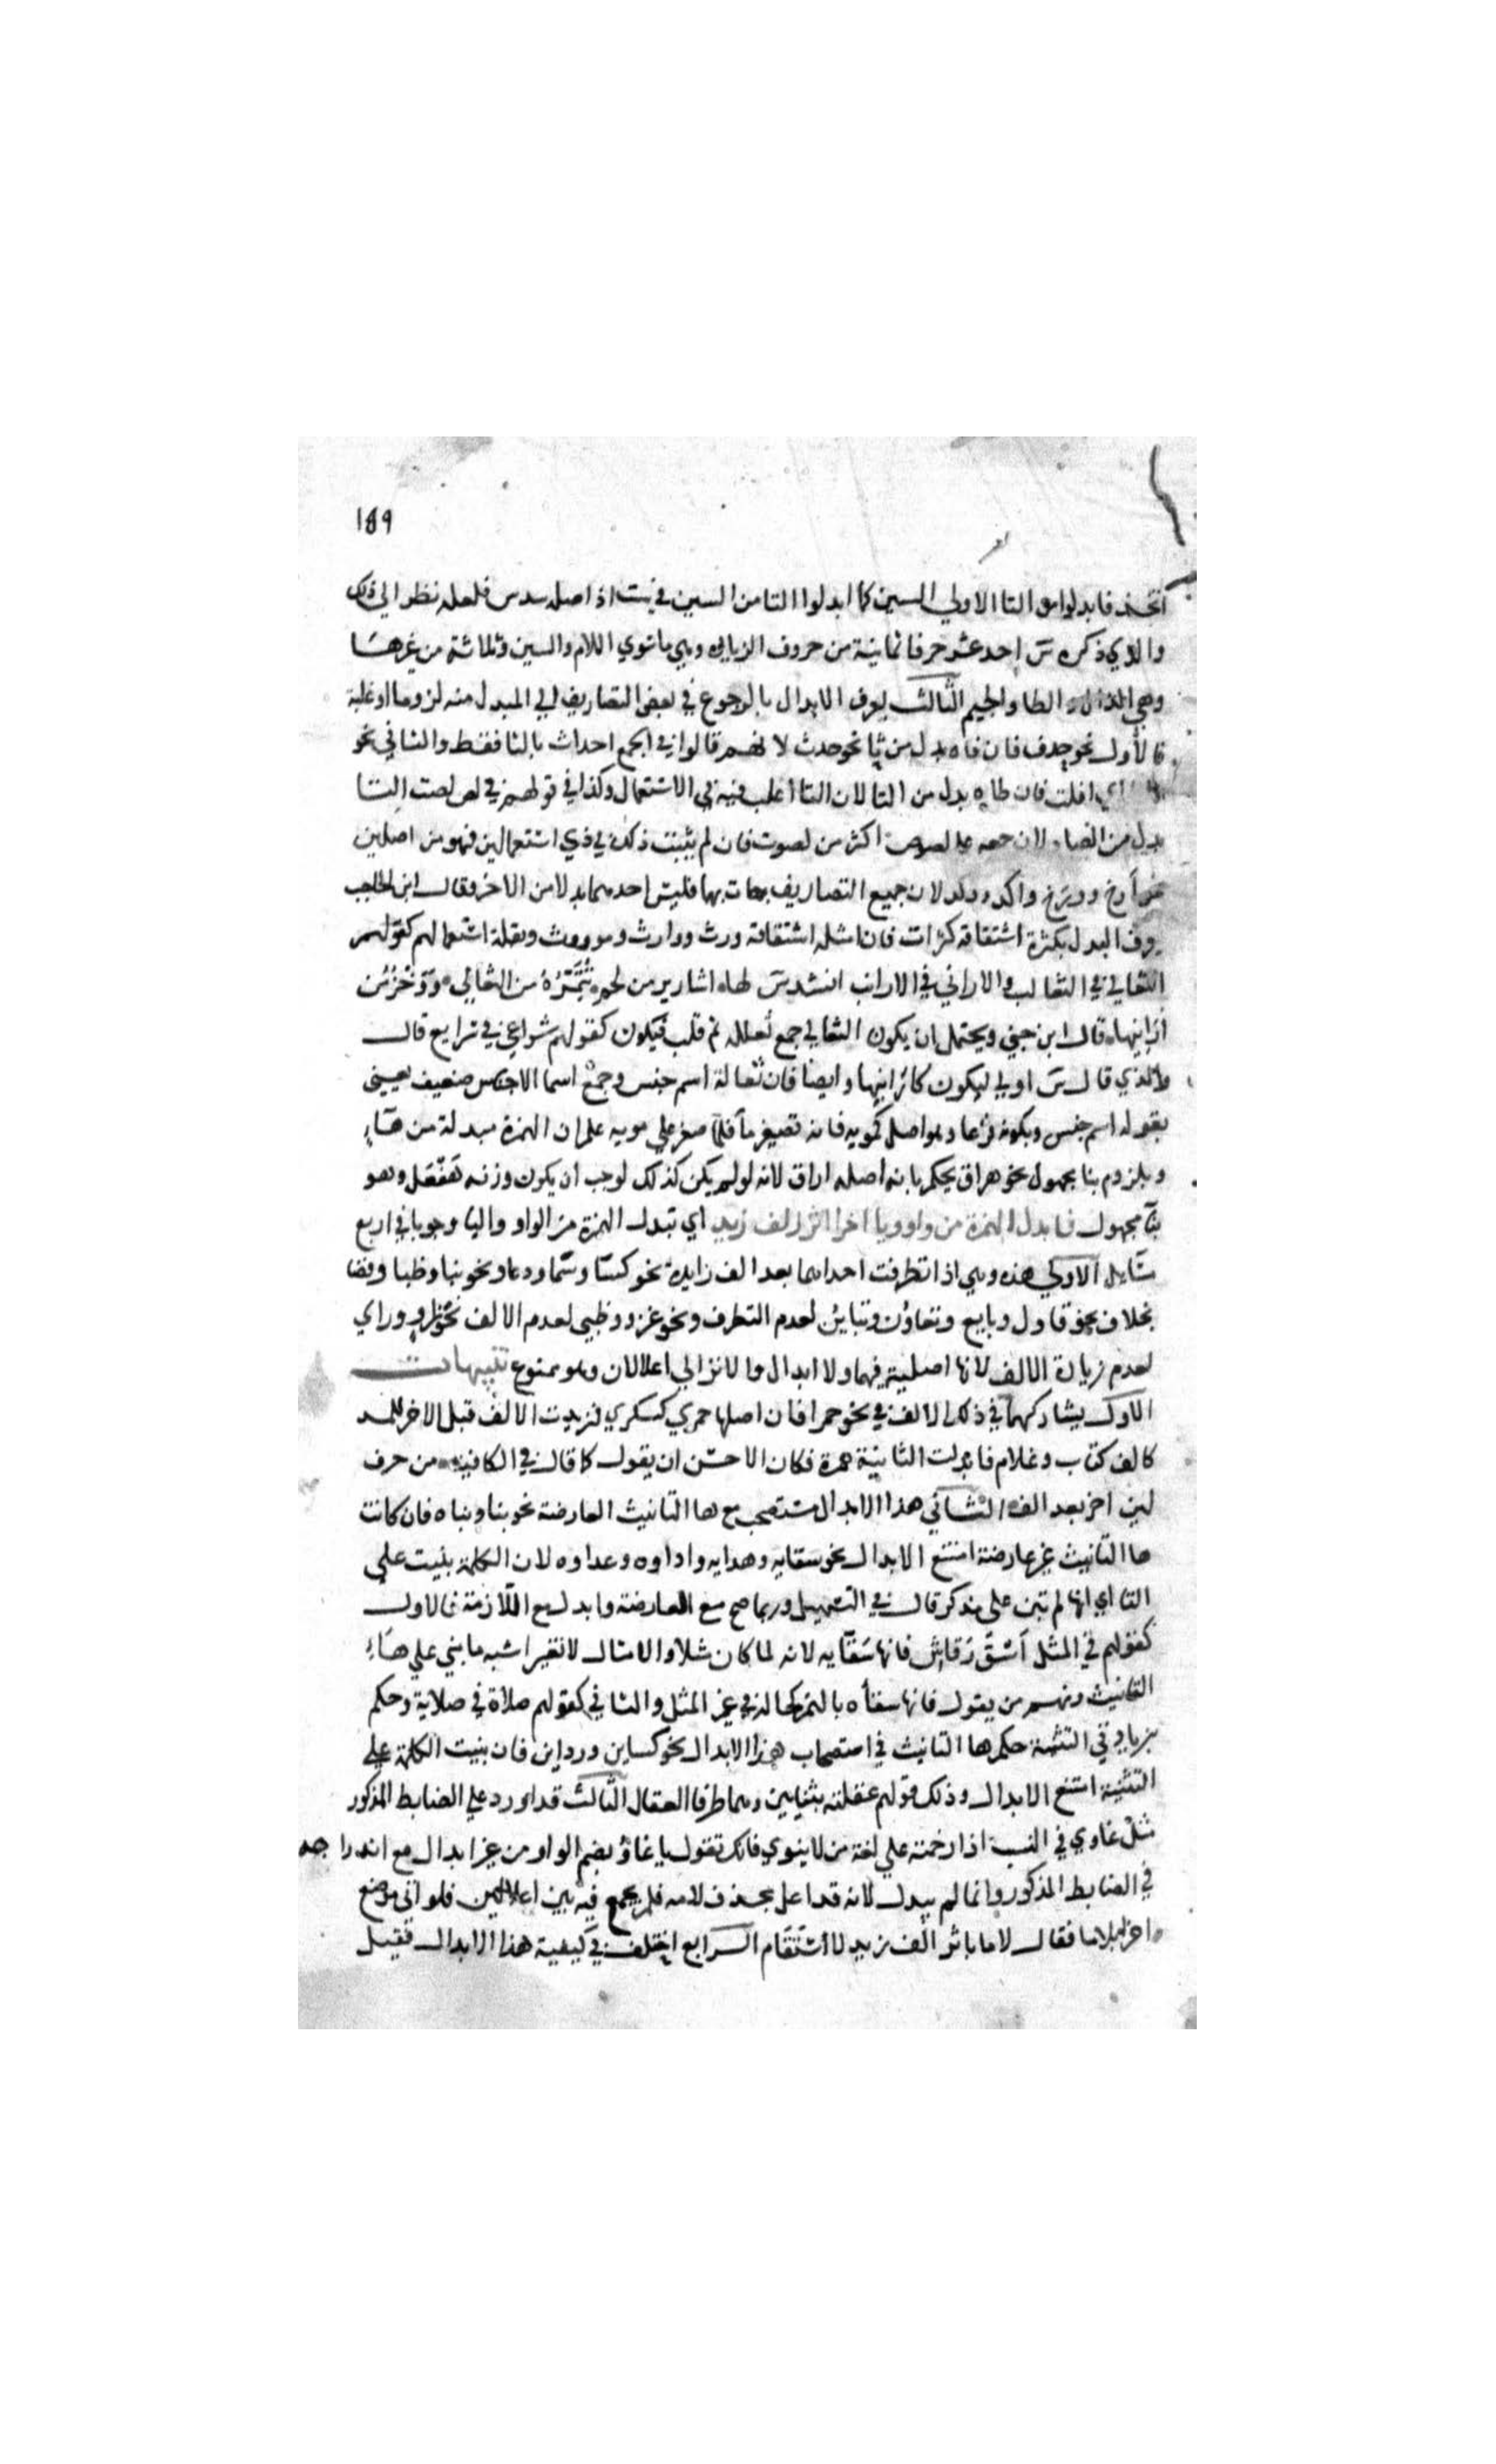 189
اتخذ فابدلوا من التا الاولي السين كما ابدلوا التا من السين في ست اذ اصله سدس فلعله نظر الي ذلك
والذي ذكره س احد عشر حرفا ثمانية من حروف الزيادة وهي ما سوي اللام والسين وثلاثة من غيرها
وهي الدال والطا والجيم الثالث يعرف الابدال بالرجوع في بعض التصاريف الي المبدل منه لزوما او غلبة
فالأول نحو جدف فان فاه بدل من ثا نحو جدث لانهم قالوا في الجمع اجداث بالثا فقط والثاني نحو
اي افلت فان طاه بدل من التا لان التا اغلب فيه في الاستعمال وكذا في قولهم في لص لصت التا
بدل من الصاد لان جمعه علي لصوص اكثر من لصوت فان لم يثبت ذلك في ذي استعمالين فهو من اصلين
نحو أرخ وورخ واكد ووكد لان جميع التصاريف جات بها فليس احدهما بدلا من الاخر وقال ابن الحاجب
يعرف البدل بكثرة اشتقاقه كتراث فان امثله اشتقاقه ورث ووارث وموروث وبقلة استعمالهم كقولهم
الثعالي في الثعالب والاراني في الارانب انشد س لها اشارير من لحم تُتَمِّرُهُ من الثعالي ووَخْزٌ من
أرانيها قال ابن جني ويحتمل ان يكون الثعالي جمع ثعاله ثم قلب فيكون كقولهم شواعي في شرايع قال
والذي قال س اولي ليكون كارانيها وايضا فان ثعالة اسم جنس وجمع اسما الاجناس ضعيف يعني
بقوله اسم جنس وبكونه فرعا وهو اصل كمويه فانه تصغير ماً فلما صغر علي مويه علم ان الهمزة مبدلة من هاء
وبلزوم بنا مجهول نحو هراق يحكم بانه اصله اراق لانه لو لم يكن كذلك لوجب ان يكون وزنه هَفْعَل وهو
بنا مجهول فابدل الهمزة من واو ويا اخرا اثر الف زيد اي تبدل الهمزة من الواو واليا وجوبا في اربع
مسايل الاولي هذه وهي اذا تطرفت احداهما بعد الف زايدة نحو كسا وسما ودعا ونحو بنا وظبا وقضا
بخلاف نحو قاول وبايع وتعاون وتباين لعدم التطرف ونحو غزو وظبي لعدم الالف ونحو واو وراي
لعدم زيادة الالف لانها اصلية فيهما ولا ابدال والا لتوالي اعلالان وهو ممنوع تنبيهات
الاول يشاركهما في ذلك الالف في نحو حمرا فان اصلها حمري كسكري فزيدت الالف قبل الاخر للمد
كالف كتاب وغلام فابدلت الثانية همزة فكان الاحسن ان يقول كما قال في الكافية من حرف
لين اخر بعد الف الثاني هذا الابدال مستصحب مع ها التانيث العارضة نحو بنا وبناه فان كانت
ها التانيث غير عارضة امتنع الابدال نحو سقايه وهدايه واداوه وعداوه لان الكلمة بنيت علي
التا اي انها لم تبن علي مذكر قال في التسهيل وربما صح مع العارضة وابدل مع اللازمة فالاول
كقولهم في المثل اسق رقاش فانها سقايه لانه لما كان مثلا والامثال لا تغير اشبه ما بني علي هاء
التانيث ومنهم من يقول فانها سقاه بالهمز كحاله في غير المثل والثاني كقولهم صلاة في صلاية وحكم
زيادتي التثنية حكم ها التانيث في استصحاب هذا الابدال نحو كساين ورداين فان بنيت الكلمة علي
التثنية امتنع الابدال وذلك قولهم عقلته بثنايين وهما طرفا العقال الثالث قد اورد علي الضابط المذكور
مثل غاوي في النسب اذا رخمته علي لغة من لا ينوي فانك تقول يا غاوُ بضم الواو من غير ابدال مع اندراجه
في الضابط المذكور وانما لم يبدل لانه قد اعل بحذف لامه فلم يجمع فيه بين اعلالين فلو اتي موضع
اخرا بلاما فقال لاما باثر الف زيد لاستقام الرابع اختلف في كيفية هذا الابدال فقيل